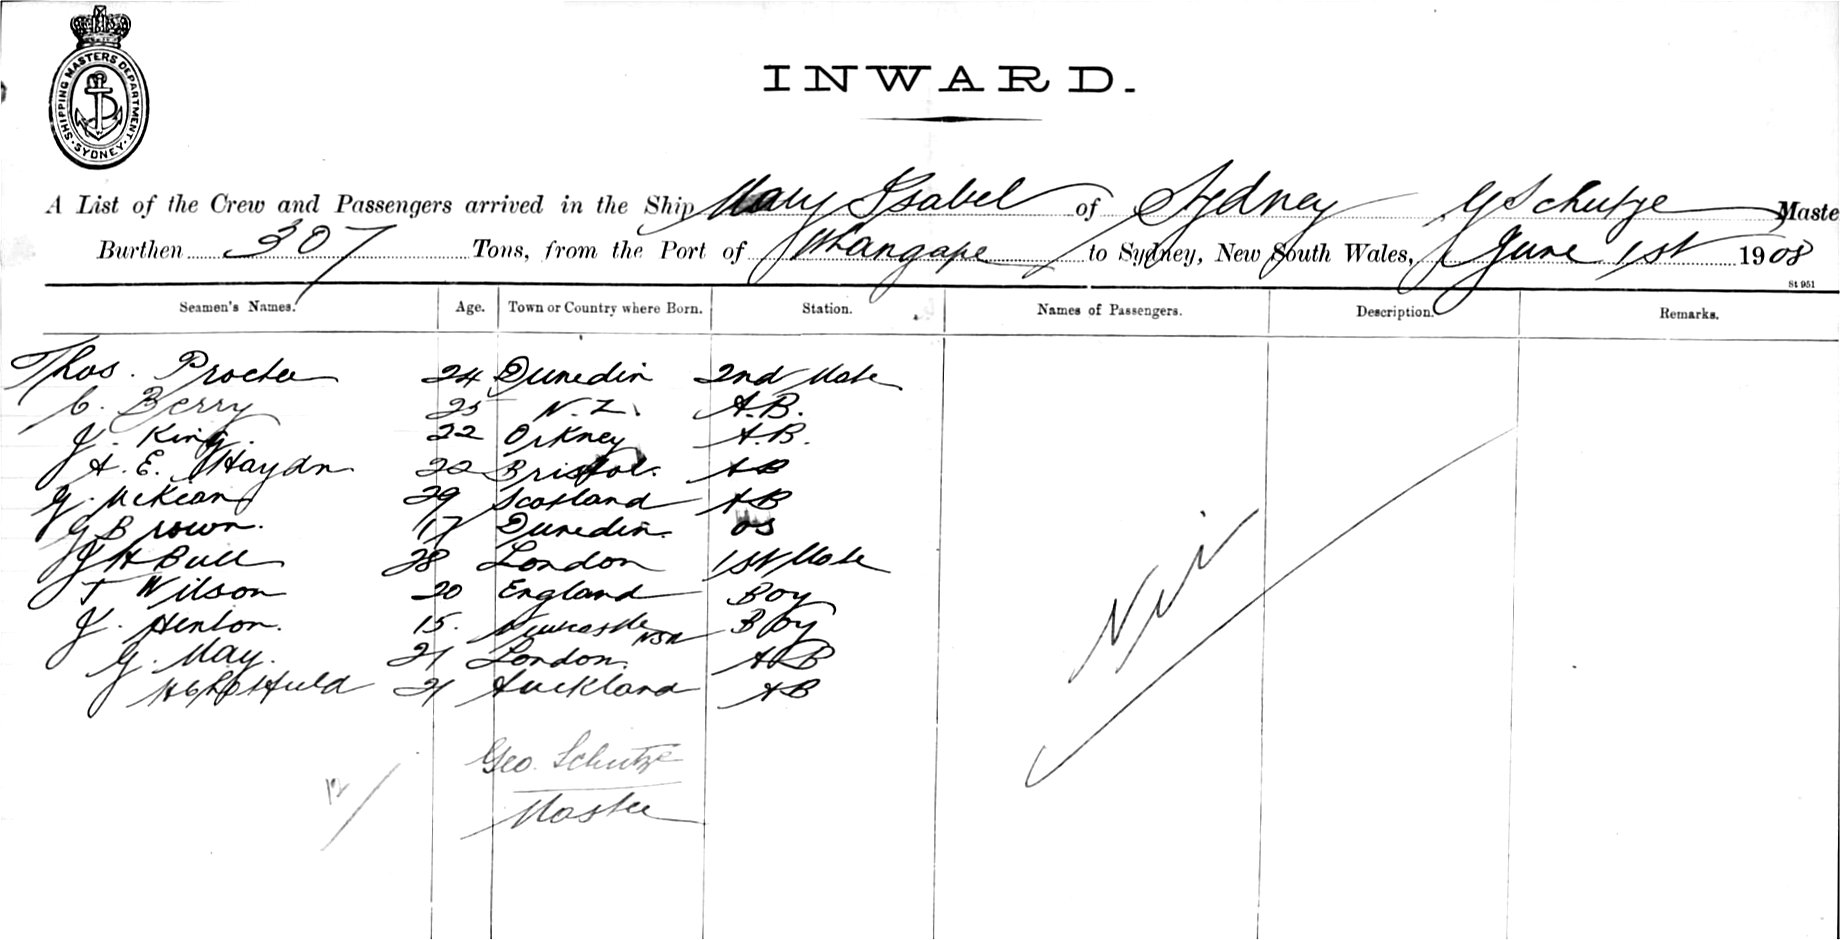 SHIPPING MASTERS DEPARTMENT. SYDNEY.
INWARD.
A List of the Crew and Passengers arrived in the Ship Mary Isabel of Sydney, G Schutze Maste
Burthen 307 Tons, from the Port of Whangape to Sydney, New South Wales, June 1st 1908
St 951
Seamen's Names. Age. Town or Country where Born. Station. Names of Passengers. Description. Remarks.
Thos. Procter 24 Dunedin 2nd Mate
C. Berry 25 N.Z. A.B.
J. King. 22 Orkney A.B.
A. E. Haydn 22 Bristol. AB
G. McKean 29 Scotland AB
G Brown. 17 Dunedin. OS
J H Bull 28 London 1st Mate
T Wilson 20 England Boy
J. Henton. 15. Newcastle NSW Boy
G. May. 21 London. AB
21 Auckland AB
Nil
Geo. Schutze
Master
12